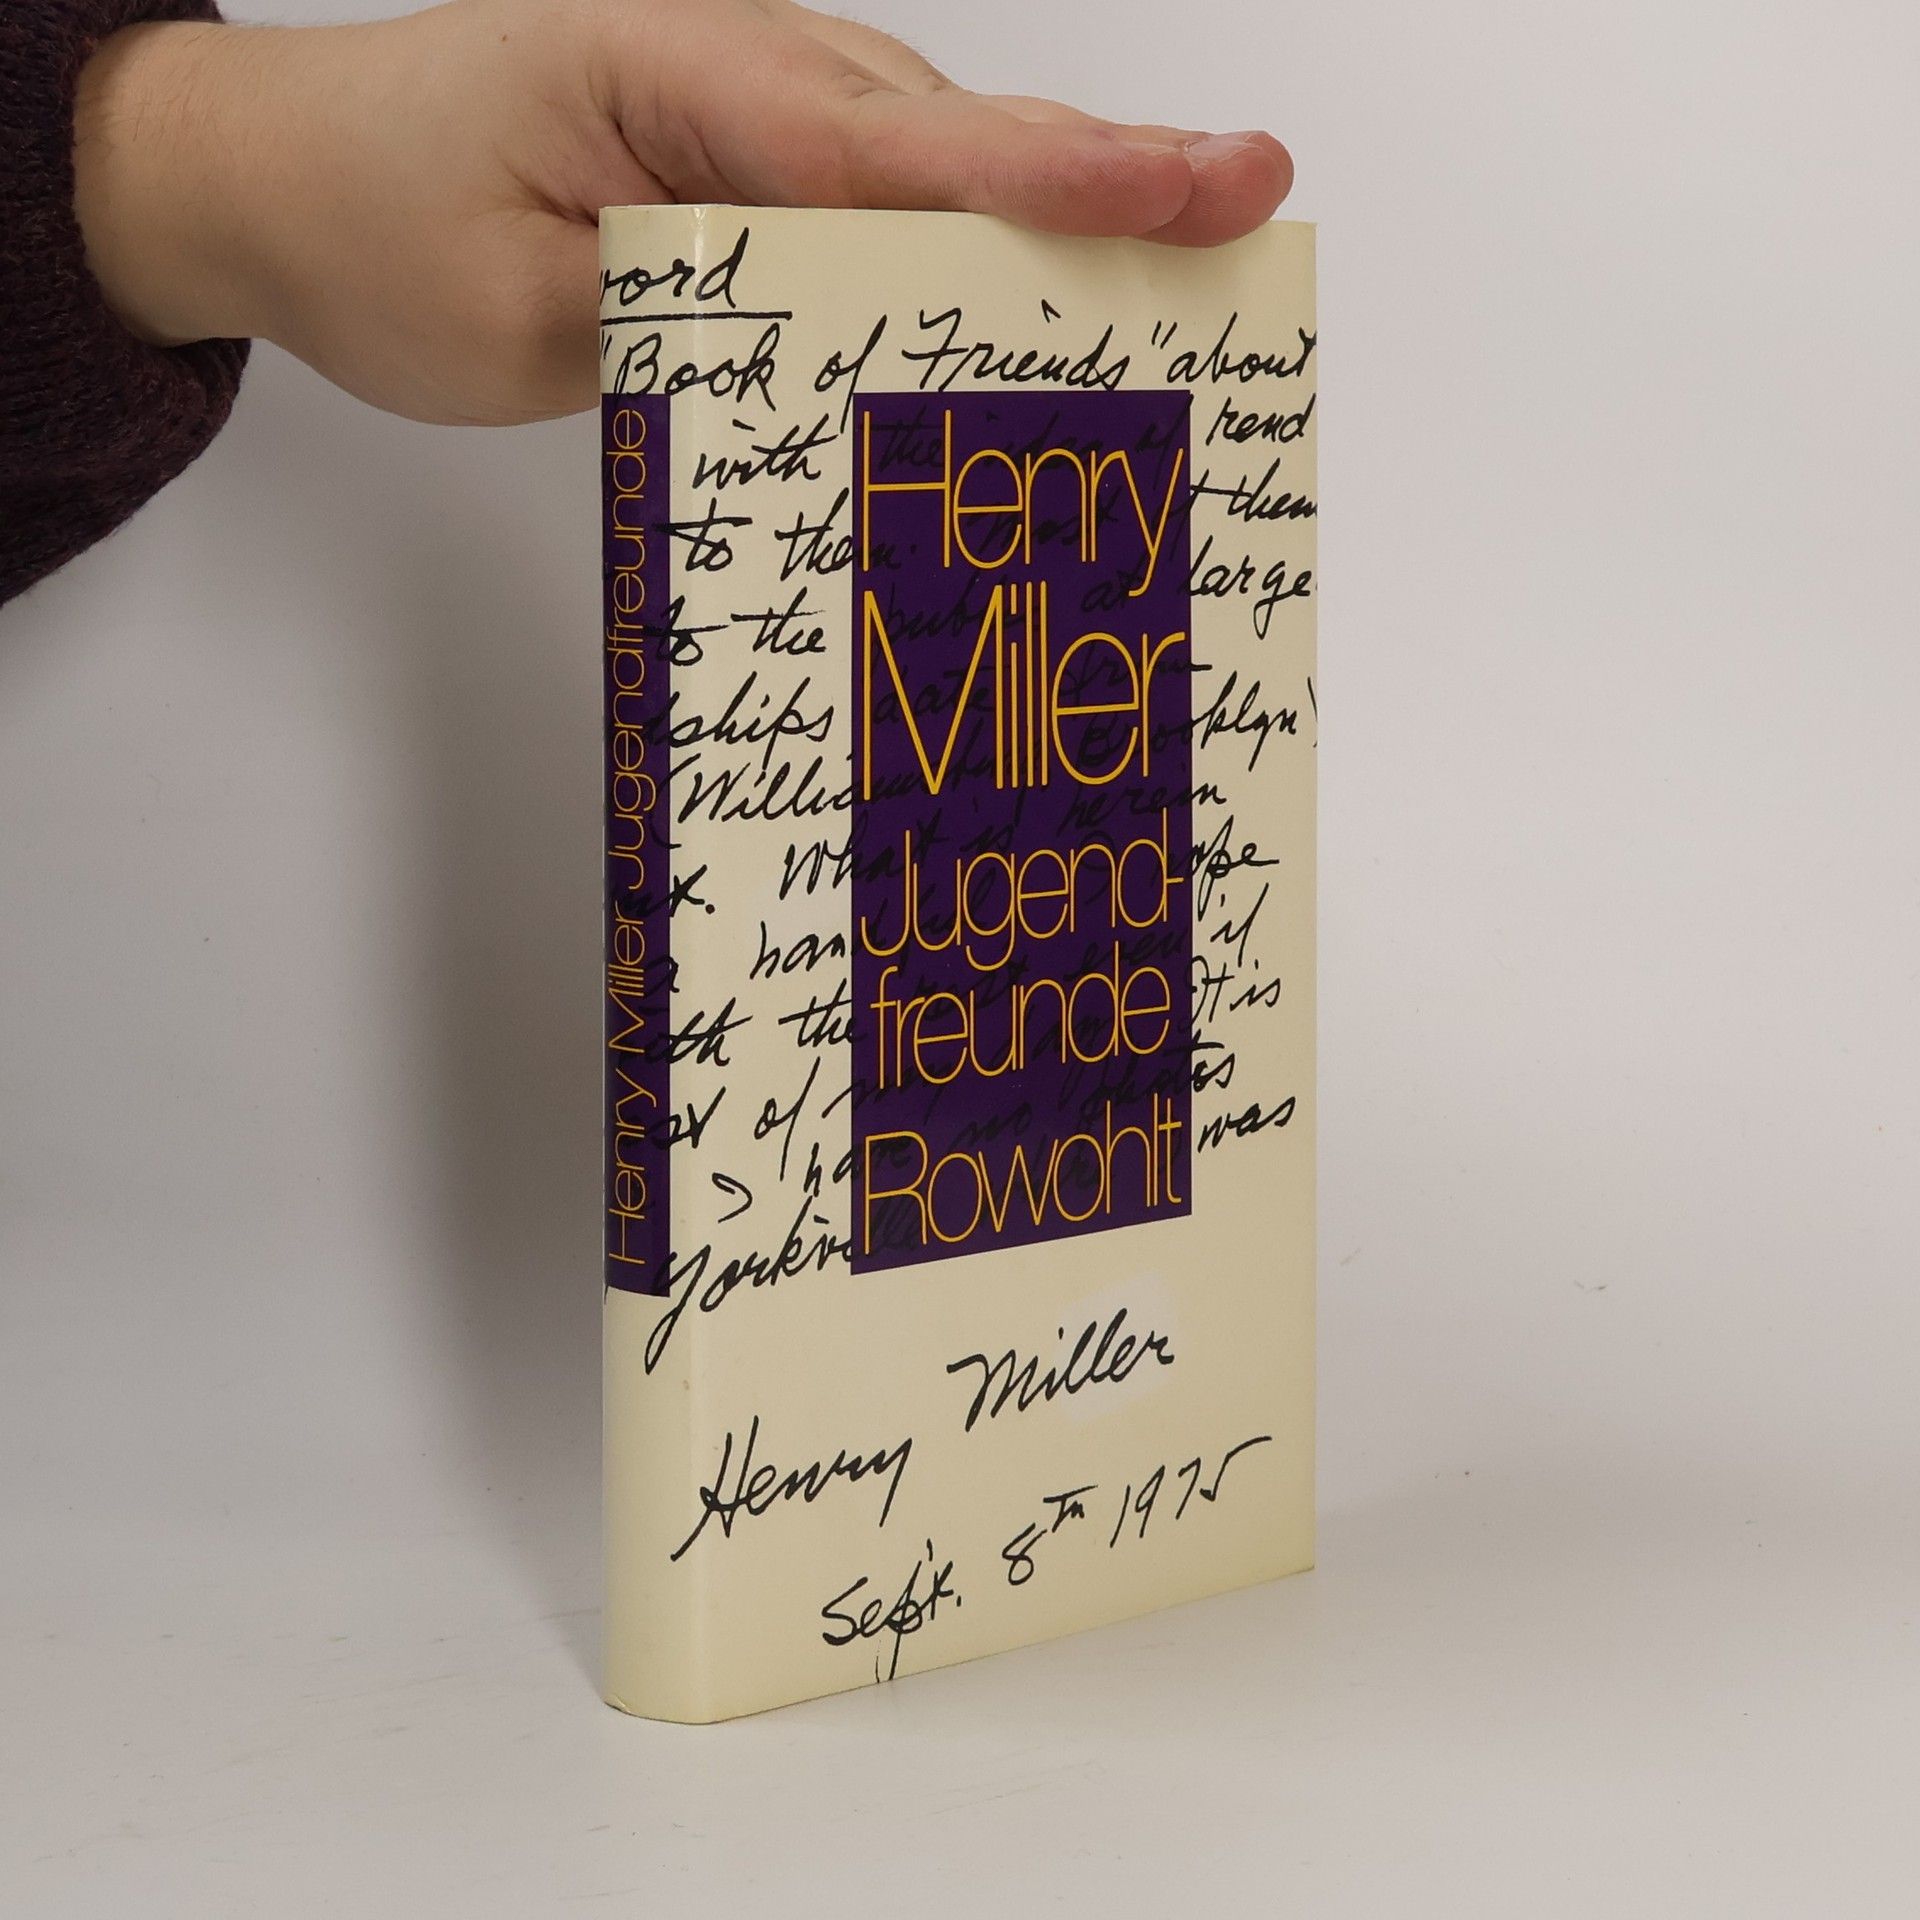 Henry Miller Jugendfreunde
word
"Book of Friends" about
with the idea of rend
to them. Most of them
to the public at large.
dships date from
(Williamsburg, Brooklyn)
What is herein
a handful I hope
with the rest even if
of my It is
have no photos
Yorkville was
Henry
Miller
Jugend-
freunde
Rowohlt
Henry Miller
Sept. 8th 1975